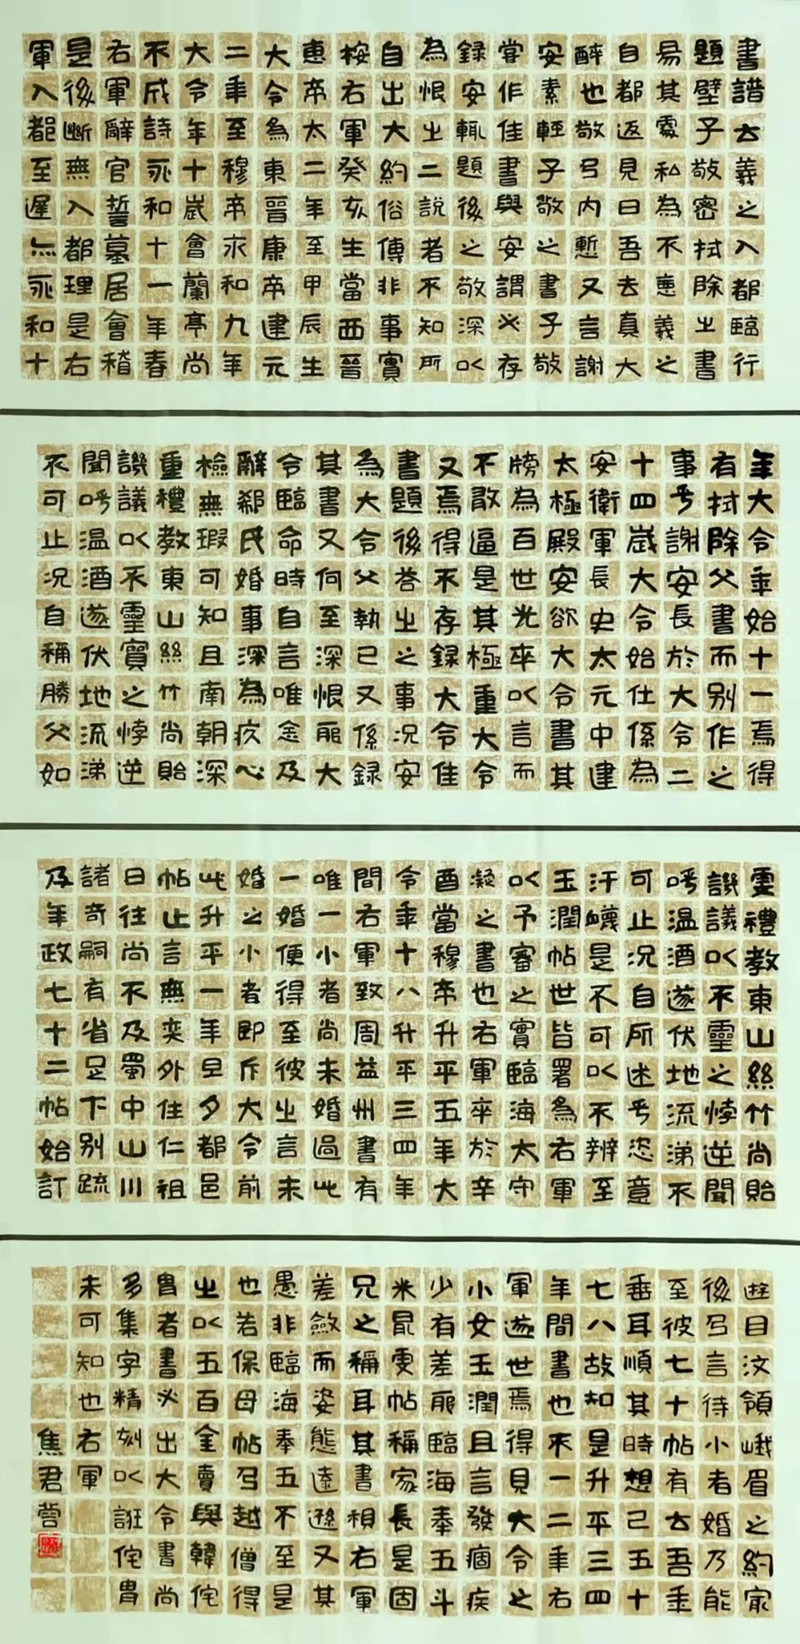 書譜云羲之入都臨行
題壁子敬密拭除之書
易其處私為不惡羲之
自都返見曰吾去真大
醉也敬乃內慙又言謝
安素輕子敬之書子敬
嘗作佳書與安謂必存
錄安輒題後之敬深以
為恨之二說者不知所
自出大約俗傳非事實
桉右軍癸亥生當西晉
惠帝太二年至甲辰生
大令為東晉康帝建元
二年至穆帝永和九年
大令年十歲會蘭亭尚
不成詩永和十一年春
右軍辭官誓墓居會稽
是後斷無入都理是右
軍入都至遲亦永和十
年大令年始十一焉得
有拭除父書而別作之
事乎謝安長於大令二
十四歲大令始仕係為
安衛軍長史太元中建
太極殿安欲大令書其
牓為百世光卒以言而
不敢逼是其極重大令
又焉得不存錄大令佳
書題後答之之事況安
為大令父執已又係錄
其書又何至深恨耶大
令臨命時自言唯念及
辭郗氏婚事深為疚心
檢無瑕可知且南朝深
重禮教東山絲竹尚貽
譏議以不靈實之悖逆
聞呼溫酒遂伏地流涕
不可止況自稱勝父如
禮教東山絲竹尚貽
譏議以不靈之悖逆聞
呼溫酒遂伏地流涕不
可止況自所述乎恣意
汙衊是不可以不辨至
玉潤帖世皆署為右軍
以予審之實臨海太守
凝之書也右軍卒於辛
酉當穆帝升平五年大
令年十八升平三四年
間右軍致周益州書有
唯一小者尚未婚過此
一婚便得至彼之言未
婚之小者即斥大令前
此升平一年早夕都邑
帖止言無奕外住仁祖
日往尚不及蜀中山川
諸奇嗣有省足下別疏
及年政七十二帖始訂
遊目汶領峨眉之約家
後乃言待小者婚乃能
至彼七十帖有云吾垂
垂耳順其時想已五十
七八故知是升平三四
年間書也不一二年右
軍遂世焉得見大令之
小女玉潤且言發痼疾
少有差耶臨海奉五斗
米帖稱家長是固
兄之稱耳其書視右軍
差斂而姿態遠遜又其
愚非臨海奉五不至是
也若保母帖乃越僧得
之以五百金賣與韓侂
冑者書必出大令書尚
多集字精刻以誑侂冑
未可知也右軍
焦君